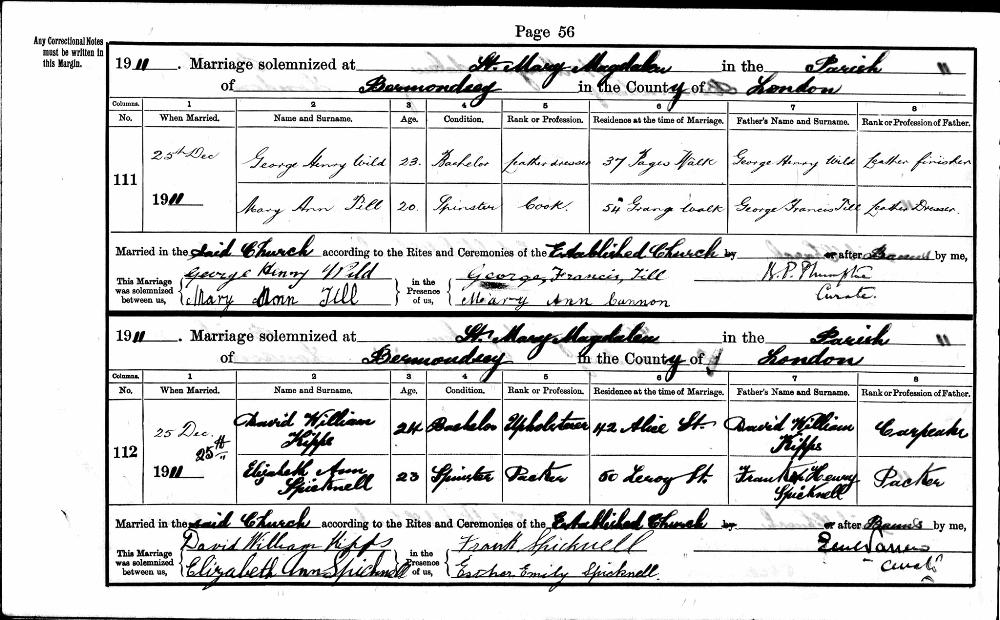 Page 56
Any Correctional Notes
must be written in
this Margin.
1911. Marriage solemnized at St. Mary Magdalen in the Parish "
of Bermondsey in the County of London
Columns. 1 2 3 4 5 6 7 8
No. When Married. Name and Surname. Age. Condition. Rank or Profession. Residence at the time of Marriage. Father's Name and Surname. Rank or Profession of Father.
25th Dec George Henry Wild 23. Bachelor Leather dresser 37 Pages Walk George Henry Wild Leather finisher
111
1911 Mary Ann Till 20. Spinster Cook. 54 Grange Walk George Francis Till Leather Dresser.
Married in the said Church according to the Rites and Ceremonies of the Established Church by or after Banns by me,
This Marriage was solemnized between us, George Henry Wild in the Presence of us, George Francis Till
Mary Ann Till Mary Ann Cannon
Curate.
1911. Marriage solemnized at St. Mary Magdalen in the Parish "
of Bermondsey in the County of London
Columns. 1 2 3 4 5 6 7 8
No. When Married. Name and Surname. Age. Condition. Rank or Profession. Residence at the time of Marriage. Father's Name and Surname. Rank or Profession of Father.
25 Dec. David William Kipps 24 Bachelor Upholsterer 42 Alice St. David William Kipps Carpenter
25th
112
1911 Elizabeth Ann Spicknell 23 Spinster Packer 50 Leroy St. Frank Henry Spicknell Packer
Married in the said Church according to the Rites and Ceremonies of the Established Church by or after Banns by me,
This Marriage was solemnized between us, David William Kipps in the Presence of us, Frank Spicknell
Elizabeth Ann Spicknell Esther Emily Spicknell.
Curate